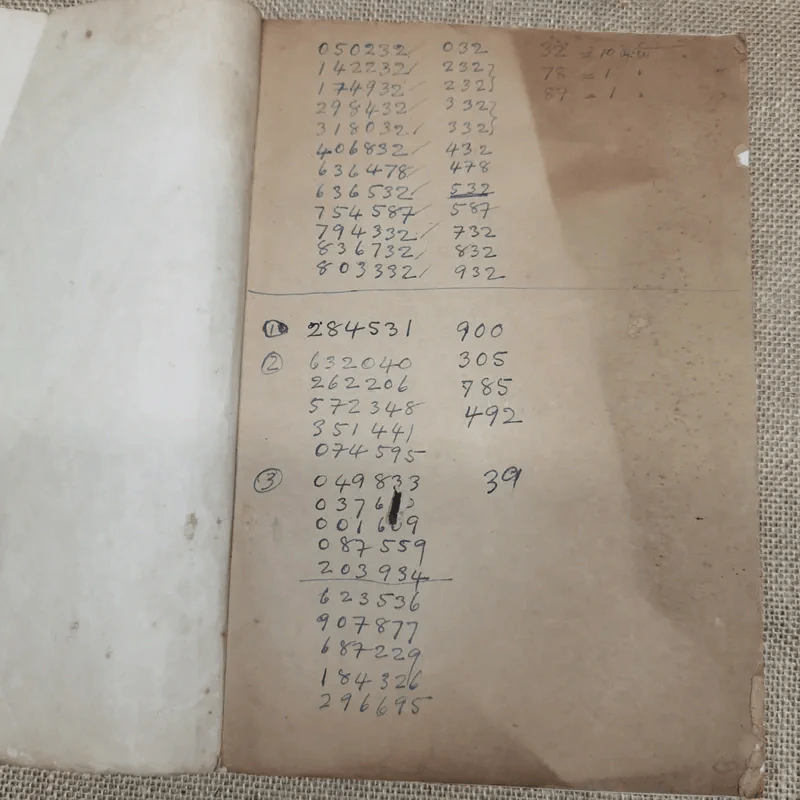 050232/ 032 32 = 10
142232/ 232} 78 = 1 "
174932/ 232} 87 = 1 "
298432/ 332}
318032/ 332}
406832/ 432
636478/ 478
636532/ 532
754587/ 587
794332/ 732
836732/ 832
803332/ 932
① 284531 900
② 632040 305
262206 785
572348 492
351441
074595
③ 049833 39
0376
001609
087559
203934
623536
907877
687229
184326
296695